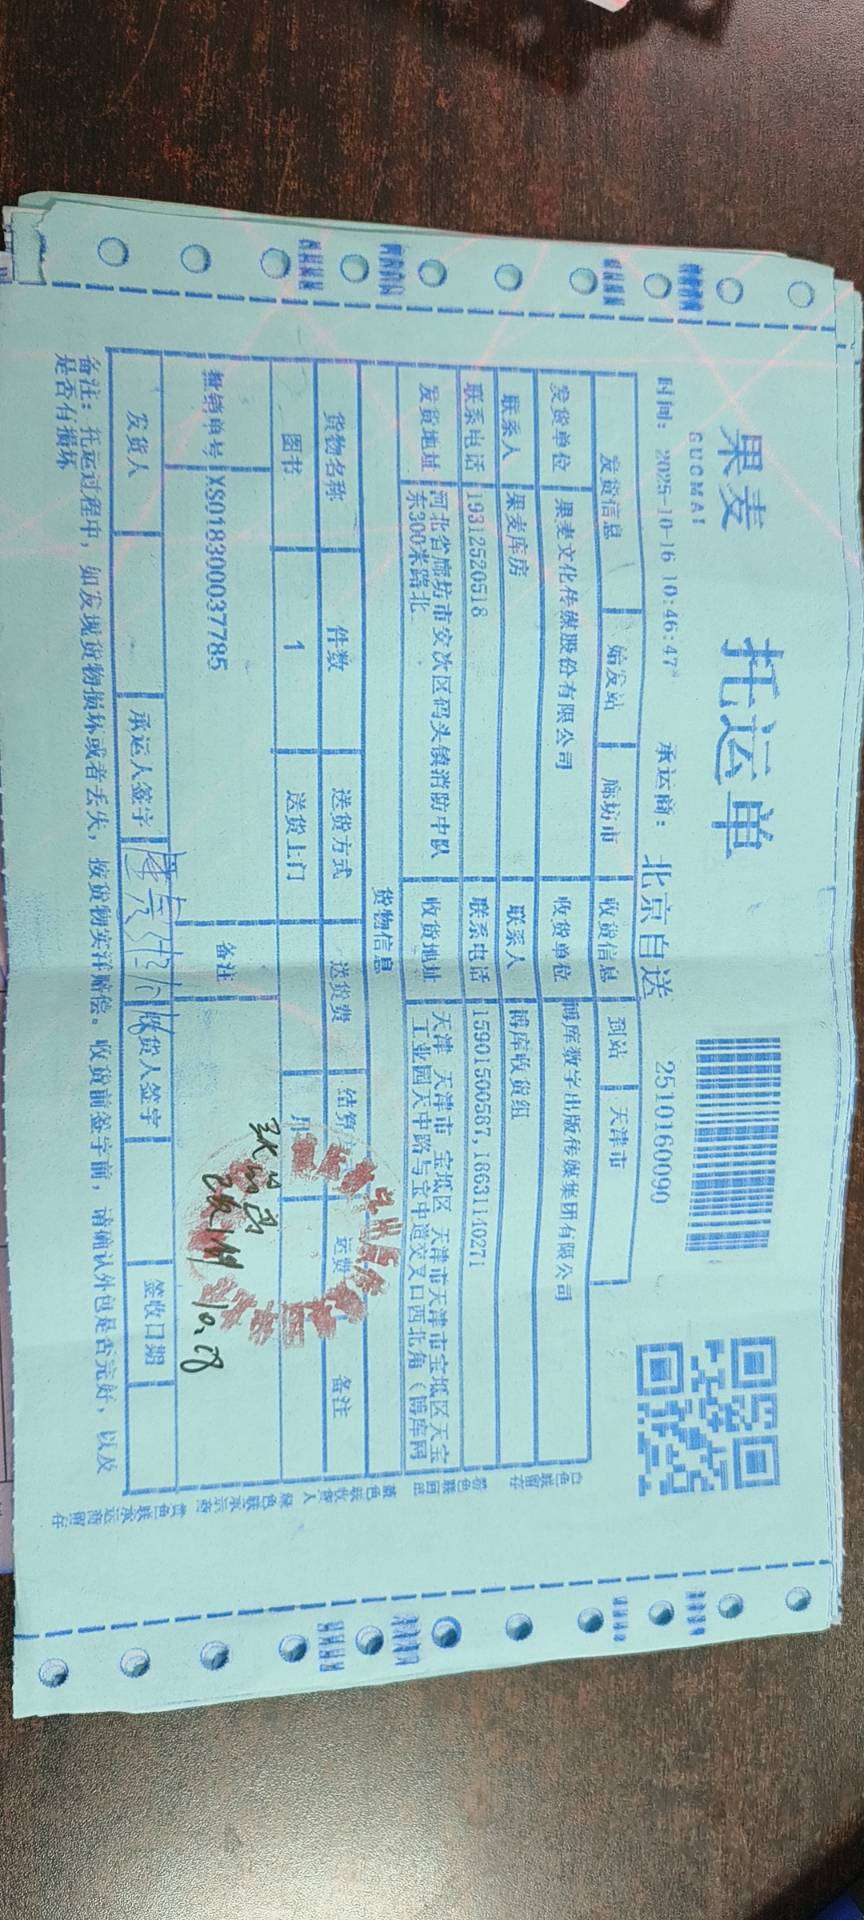 果麦
GUOMAI
托运单
时间: 2025-10-16 10:46:47
承运商: 北京自送
2510160090
发货信息 始发站 廊坊市 收货信息 到站 天津市
发货单位 果麦文化传媒股份有限公司 收货单位 博库数字出版传媒集团有限公司
联系人 果麦库房 联系人 博库收货组
联系电话 19312520518 联系电话 15901500587,18631140271
发货地址 河北省廊坊市安次区码头镇消防中队
东300米路北
收货地址 天津 天津市 宝坻区 天津市天津市宝坻区天宝
工业园天中路与宝中道交叉口西北角(博库网
货物信息
货物名称 件数 送货方式 送货费 结算 运费 备注
图书 1 送货上门 月
报销单号 XS018300037785 备注
10.28
发货人 承运人签字 收货人签字 签收日期
备注: 托运过程中, 如发现货物损坏或者丢失, 按货物实洋赔偿。收货前签字前, 请确认外包是否完好, 以及
是否有损坏